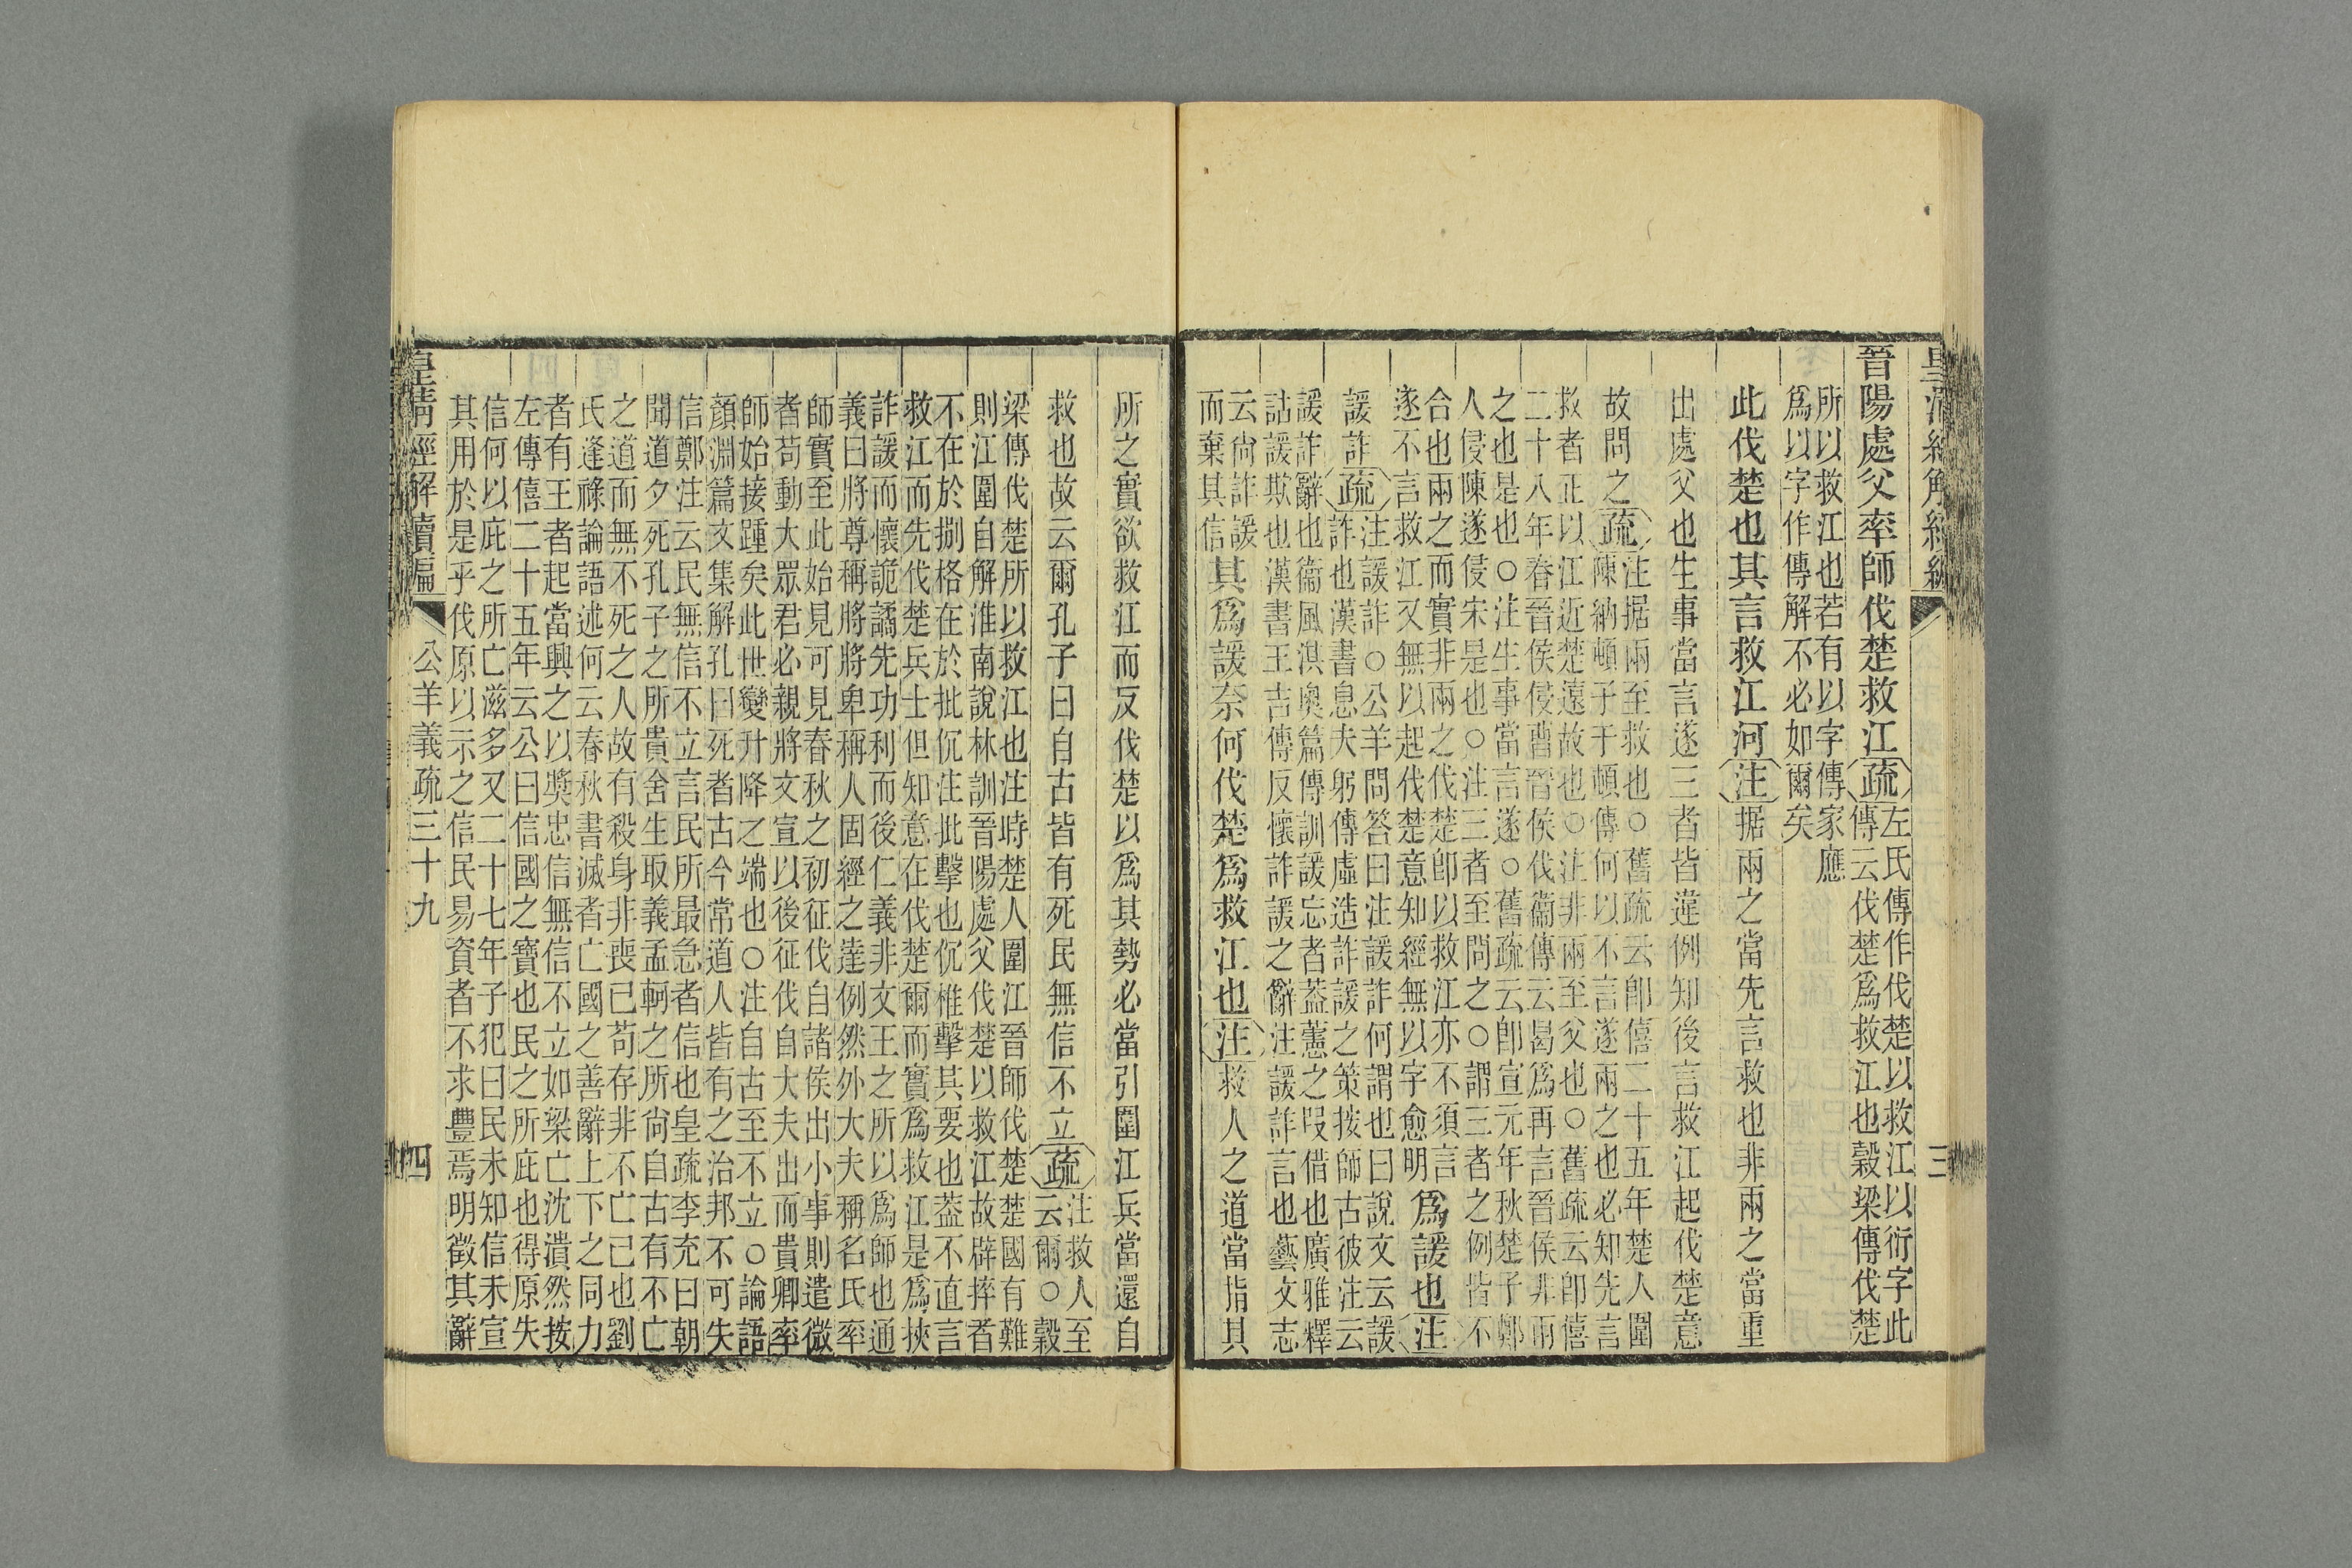 皇清經解續編
三
晉陽處父率師伐楚救江疏左氏傳作伐楚以救江以衍字此
傳云伐楚爲救江也穀梁傳伐楚
所以救江也若有以字傳家應
爲以字作傳解不必如爾矣
此伐楚也其言救江河注据兩之當先言救也非兩之當重
出處父也生事當言遂三者皆違例知後言救江起伐楚意
故問之疏注据兩至救也○舊疏云卽僖二十五年楚人圍
陳納頓子于頓傳何以不言遂兩之也必知先言
救者正以江近楚遠故也○注非兩至父也○舊疏云卽僖
二十八年春晉侯侵曹晉侯伐衞傳云曷爲再言晉侯非兩
之也是也○注生事當言遂○舊疏云卽宣元年秋楚子鄭
人侵陳遂侵宋是也○注三者至問之○謂三者之例皆不
合也兩之而實非兩之伐楚卽以救江亦不須言
遂不言救江又無以起伐楚意知經無以字愈明爲諼也注
諼詐疏注諼詐○公羊問答曰注諼詐何謂也曰說文云諼
詐也漢書息夫躬傳虛造詐諼之策按師古彼注云
諼詐辭也衞風淇奧篇傳訓諼忘者葢藼之叚借也廣雅釋
詁諼欺也漢書王吉傳反懷詐諼之辭注諼詐言也藝文志
云尙詐諼
而棄其信其爲諼奈何伐楚爲救江也注救人之道當指其
所之實欲救江而反伐楚以爲其勢必當引圍江兵當還自
救也故云爾孔子曰自古皆有死民無信不立疏注救人至
云爾○穀
梁傳伐楚所以救江也注時楚人圍江晉師伐楚楚國有難
則江圍自解淮南說林訓晉陽處父伐楚以救江故解捽者
不在於捌格在於批伔注批擊也伔椎擊其要也葢不直言
救江而先伐楚兵士但知意在伐楚爾而實爲救江是爲挾
詐諼而懷詭譎先功利而後仁義非文王之所以爲師也通
義曰將尊稱將將卑稱人固經之達例然外大夫稱名氏率
師實至此始見可見春秋之初征伐自諸侯出小事則遣微
者苟動大眾君必親將文宣以後征伐自大夫出而貴卿率
師始接踵矣此世變升降之端也○注自古至不立○論語
顏淵篇文集解孔曰死者古今常道人皆有之治邦不可失
信鄭注云民無信不立言民所最急者信也皇疏李充曰朝
聞道夕死孔子之所貴舍生取義孟軻之所尙自古有不亡
之道而無不死之人故有殺身非喪己苟存非不亡己也劉
氏逢祿論語述何云春秋書滅者亡國之善辭上下之同力
者有王者起當興之以獎忠信無信不立如梁亡沈潰然按
左傳僖二十五年云公曰信國之寶也民之所庇也得原失
信何以庇之所亡滋多又二十七年子犯曰民未知信未宣
其用於是乎伐原以示之信民易資者不求豐焉明徵其辭
皇清經解續編
公羊義疏三十九
四